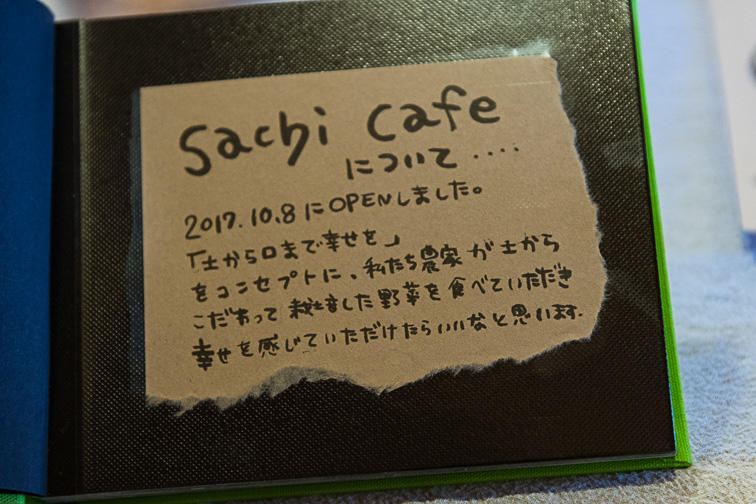 Sachi Cafe
について....
2017.10.8 に OPENしました。
「土から口まで幸せを」
をコンセプトに、私たち農家が土から
こだわって栽培した野菜を食べていただき
幸せを感じていただけたらいいなと思います.